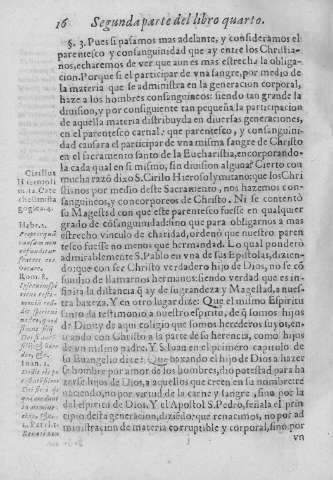 16 Segunda parte del libro quarto.
§. 3. Pues si pasamos mas adelante, y consideramos el
parentesco y consanguinidad que ay entre los Christia-
nos, echaremos de ver que aun es mas estrecha la obliga-
cion. Porque si el participar de vna sangre, por medio de
la materia que se administra en la generacion corporal,
haze a los hombres consanguineos: siendo tan grande la
diuision, y por consiguiente tan pequeña la participacion
de aquella materia distribuyda en diuersas generaciones,
en el parentesco carnal: que parentesco, y consanguini-
dad causara el participar de vna misma sangre de Christo
en el sacramento santo de la Eucharistia, encorporando-
la cada qual en si mismo, sin diuision alguna? Cierto con
mucha razō dixo S. Cirilo Hierosolymitano: que los Chri
stianos por medio deste Sacramento, nos hazemos con-
sanguineos, y concorporeos de Christo. Ni se contentó
su Magestad con que este parentesco fuesse en qualquier
grado de cōsanguinidad sino que para obligarnos a mas
estrecho vinculo de charidad, ordenó que nuestro paren
tesco fuesse no menos que hermandad. Lo qual ponderó
admirablemente S. Pablo en vna de sus Epistolas, dizien-
do: que con ser Christo verdadero hijo de Dios, no se cō
fundio de llamarnos hermanos: siendo verdad que es in-
finita la distancia q̄ ay de su grandeza y Magestad, a nues-
tra baxeza. Y en otro lugar dize: Que el mismo Espiritu
santo da testimonio a nuestro espiritu, de q̄ somos hijos
de Dios: y de aqui coligio que somos herederos suyos, en-
trando con Christo a la parte de su herencia, como hijos
de vn mismo padre. Y S. Iuan en el primero capitulo de
su Euangelio dize: Que baxando el hijo de Dios a hazer
se hombre por amor de los hombres, dio potestad para ha
zerse hijos de Dios, a aquellos que creen en su nombre: re
naciendo, no por virtud de la carne y sangre, sino por la
del espiritu de Dios. Y el Apostol S. Pedro, señala el prin
cipio desta generacion, diziēdo: que renacimos, no por ad
ministracion de materia corruptible y corporal, sino por
vn
Cirillus
Hierosoli
mita. Cate
chesi mista
gogica. 4.
Hebr. 2.
Propter quā
causam non
confunditur
fratres eos
vocare.
Rom. 8.
Ioan. 1.
1. Petri. 1.
Renati non